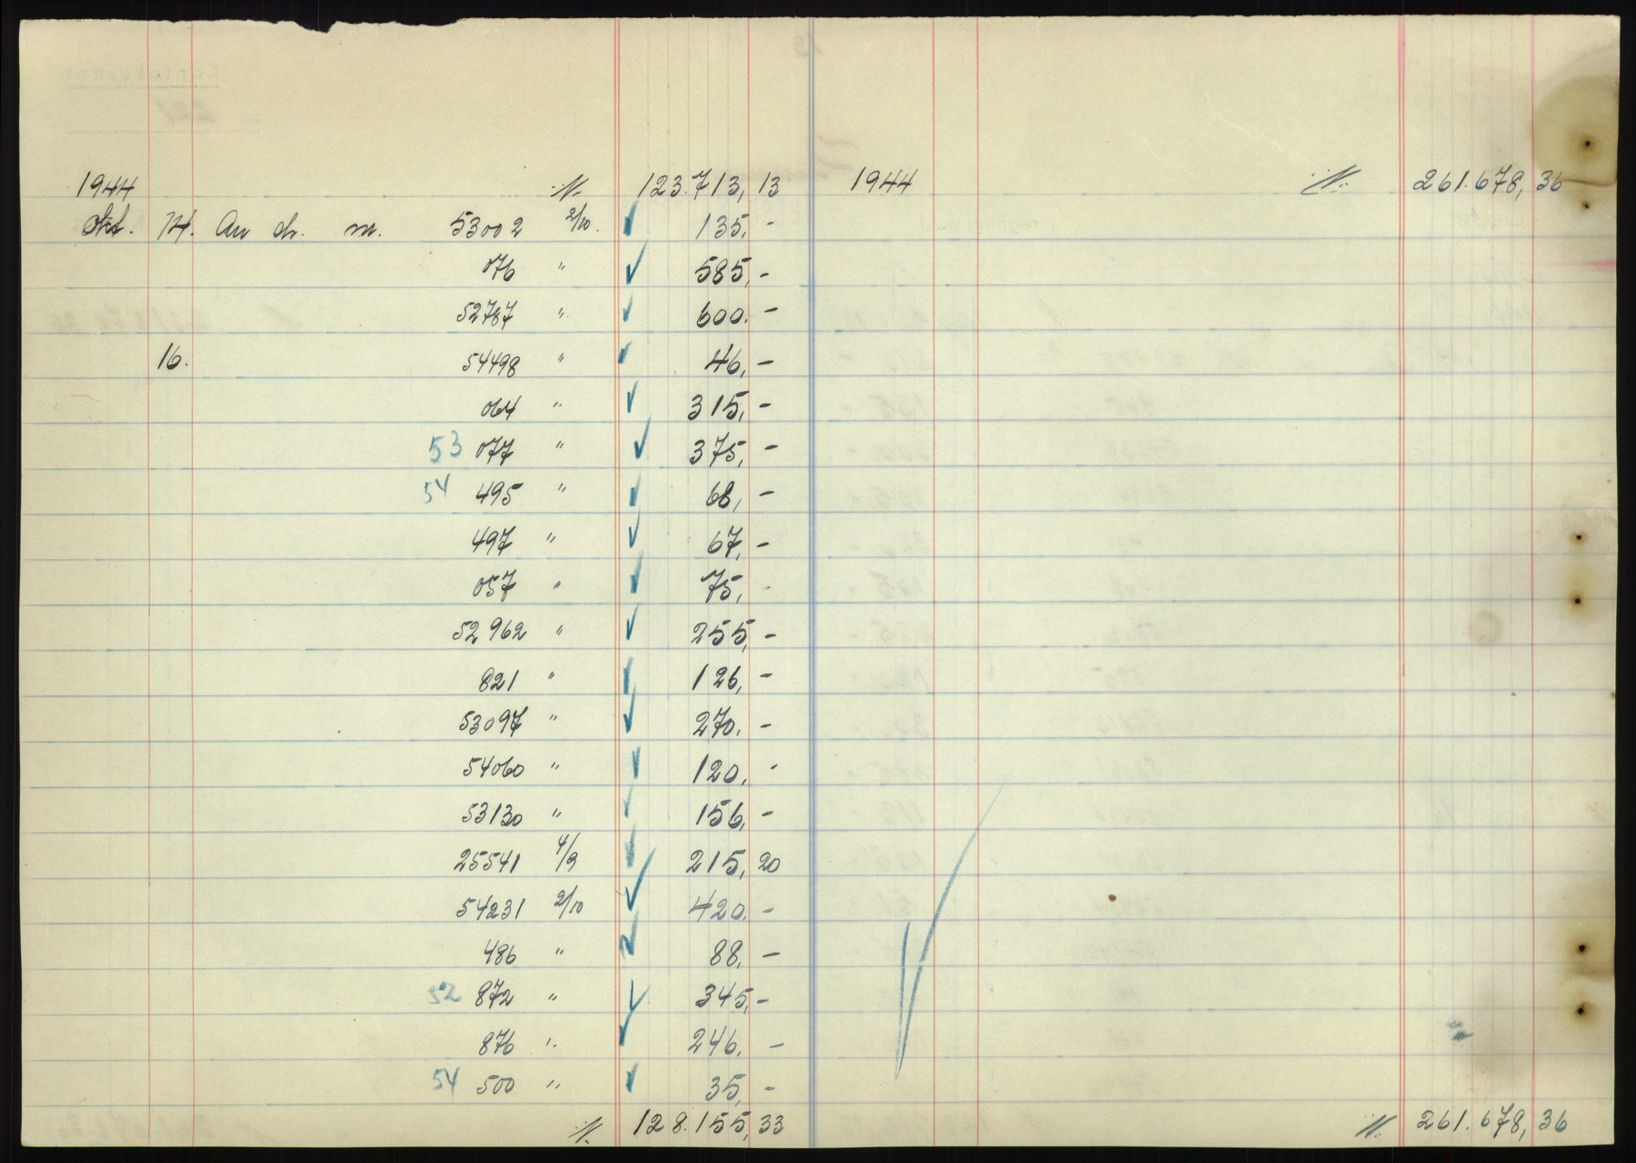 1944 ·/· 123.713,13 1944 ·/· 261.678,36
Okt. 14. An ch. m. 53002 2/10. 135,-
076 " 585,-
52787 " 600.-
16. 54498 " 46,-
064 " 315,-
53 077 " 375,-
54 495 " 68,-
497 " 67,-
057 " 75,-
52962 " 255,-
821 " 126,-
53097 " 270.-
54060 " 120,-
53130 " 156,-
25541 4/9 215,20
54231 2/10 420.-
486 " 88,-
52 872 " 345,-
876 " 246,-
54 500 " 35,-
·/· 128.155,33 ·/· 261.678,36